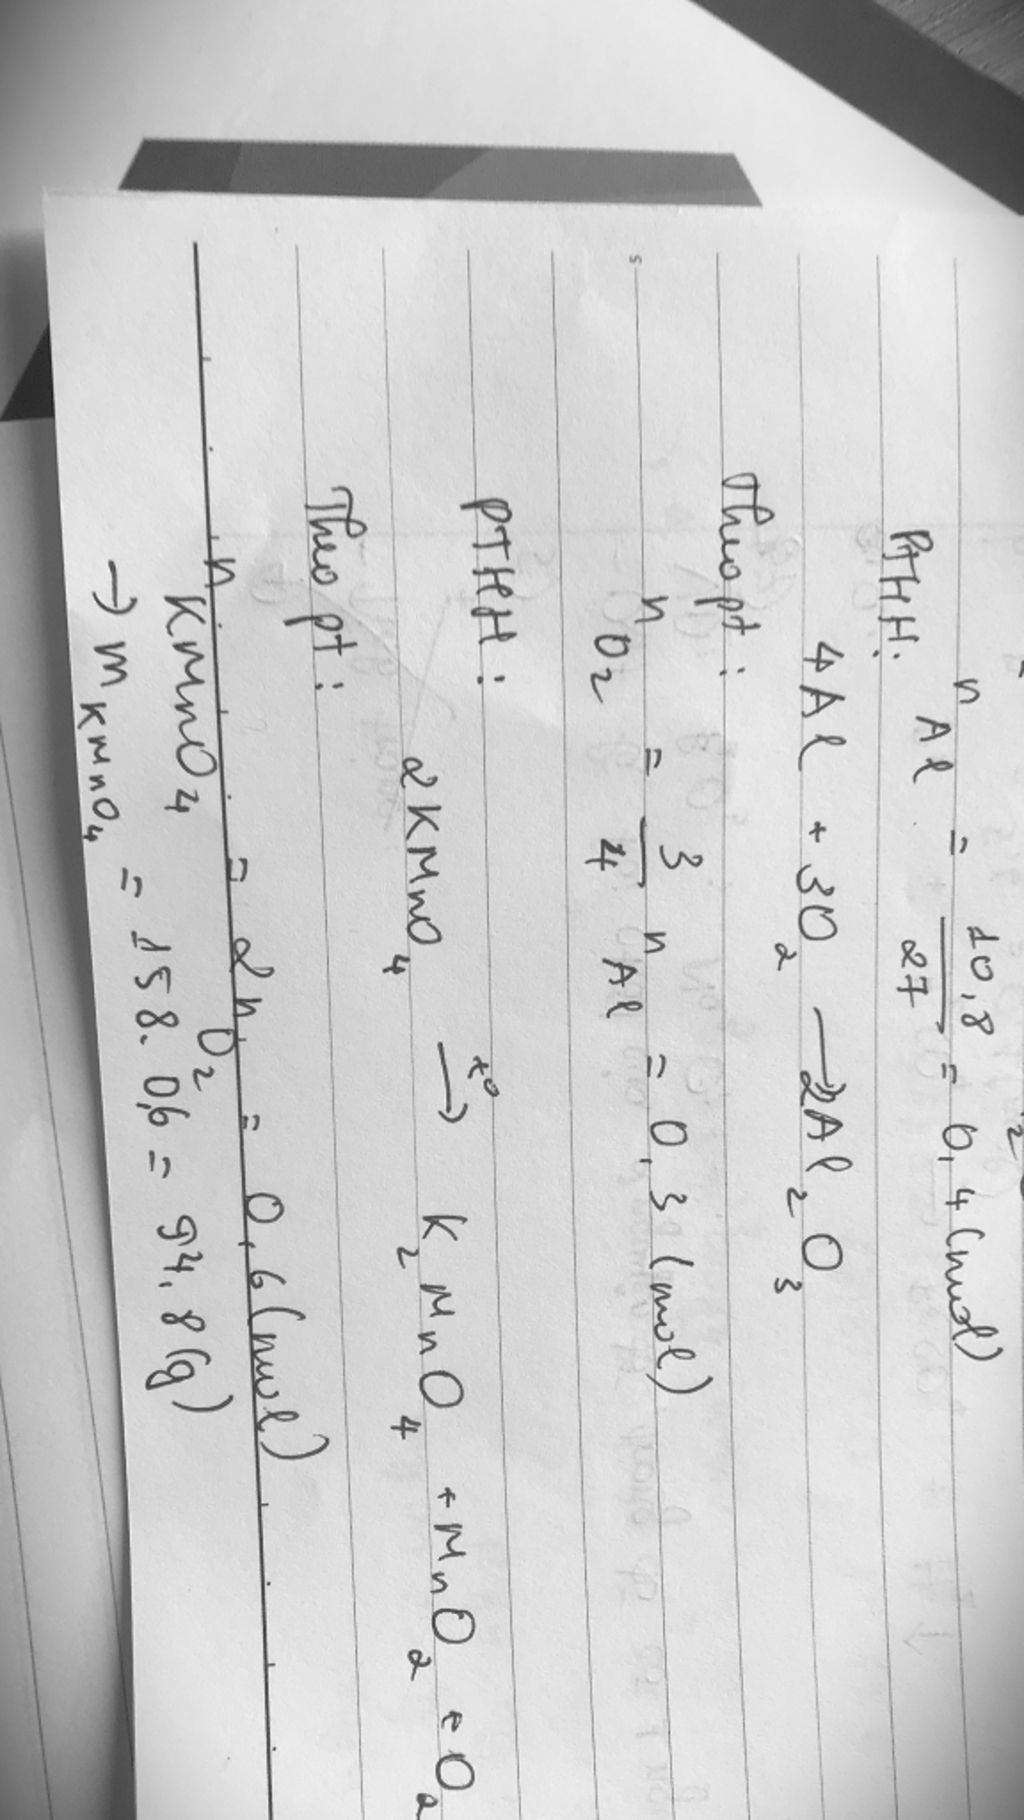 n Al = 10,8/27 = 0,4 (mol)
PTHH:
4Al + 3O2 → 2Al2O3
Theo pt:
n O2 = 3/4 n Al = 0,3 (mol)
PTHH:
2KMnO4 →t° K2MnO4 + MnO2 + O2
Theo pt:
n KMnO4 = 2n O2 = 0,6 (mol)
→ m KMnO4 = 158. 0,6 = 94,8 (g)